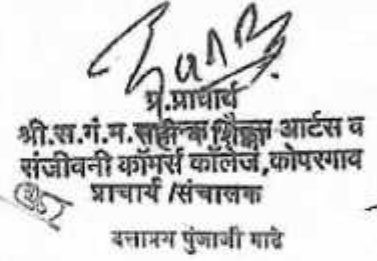 प्र.प्राचार्य
श्री.स.गं.म. आर्टस व
संजीवनी कॉमर्स कॉलेज,कोपरगाव
प्राचार्य /संचालक
दत्तात्रय पुंजाजी